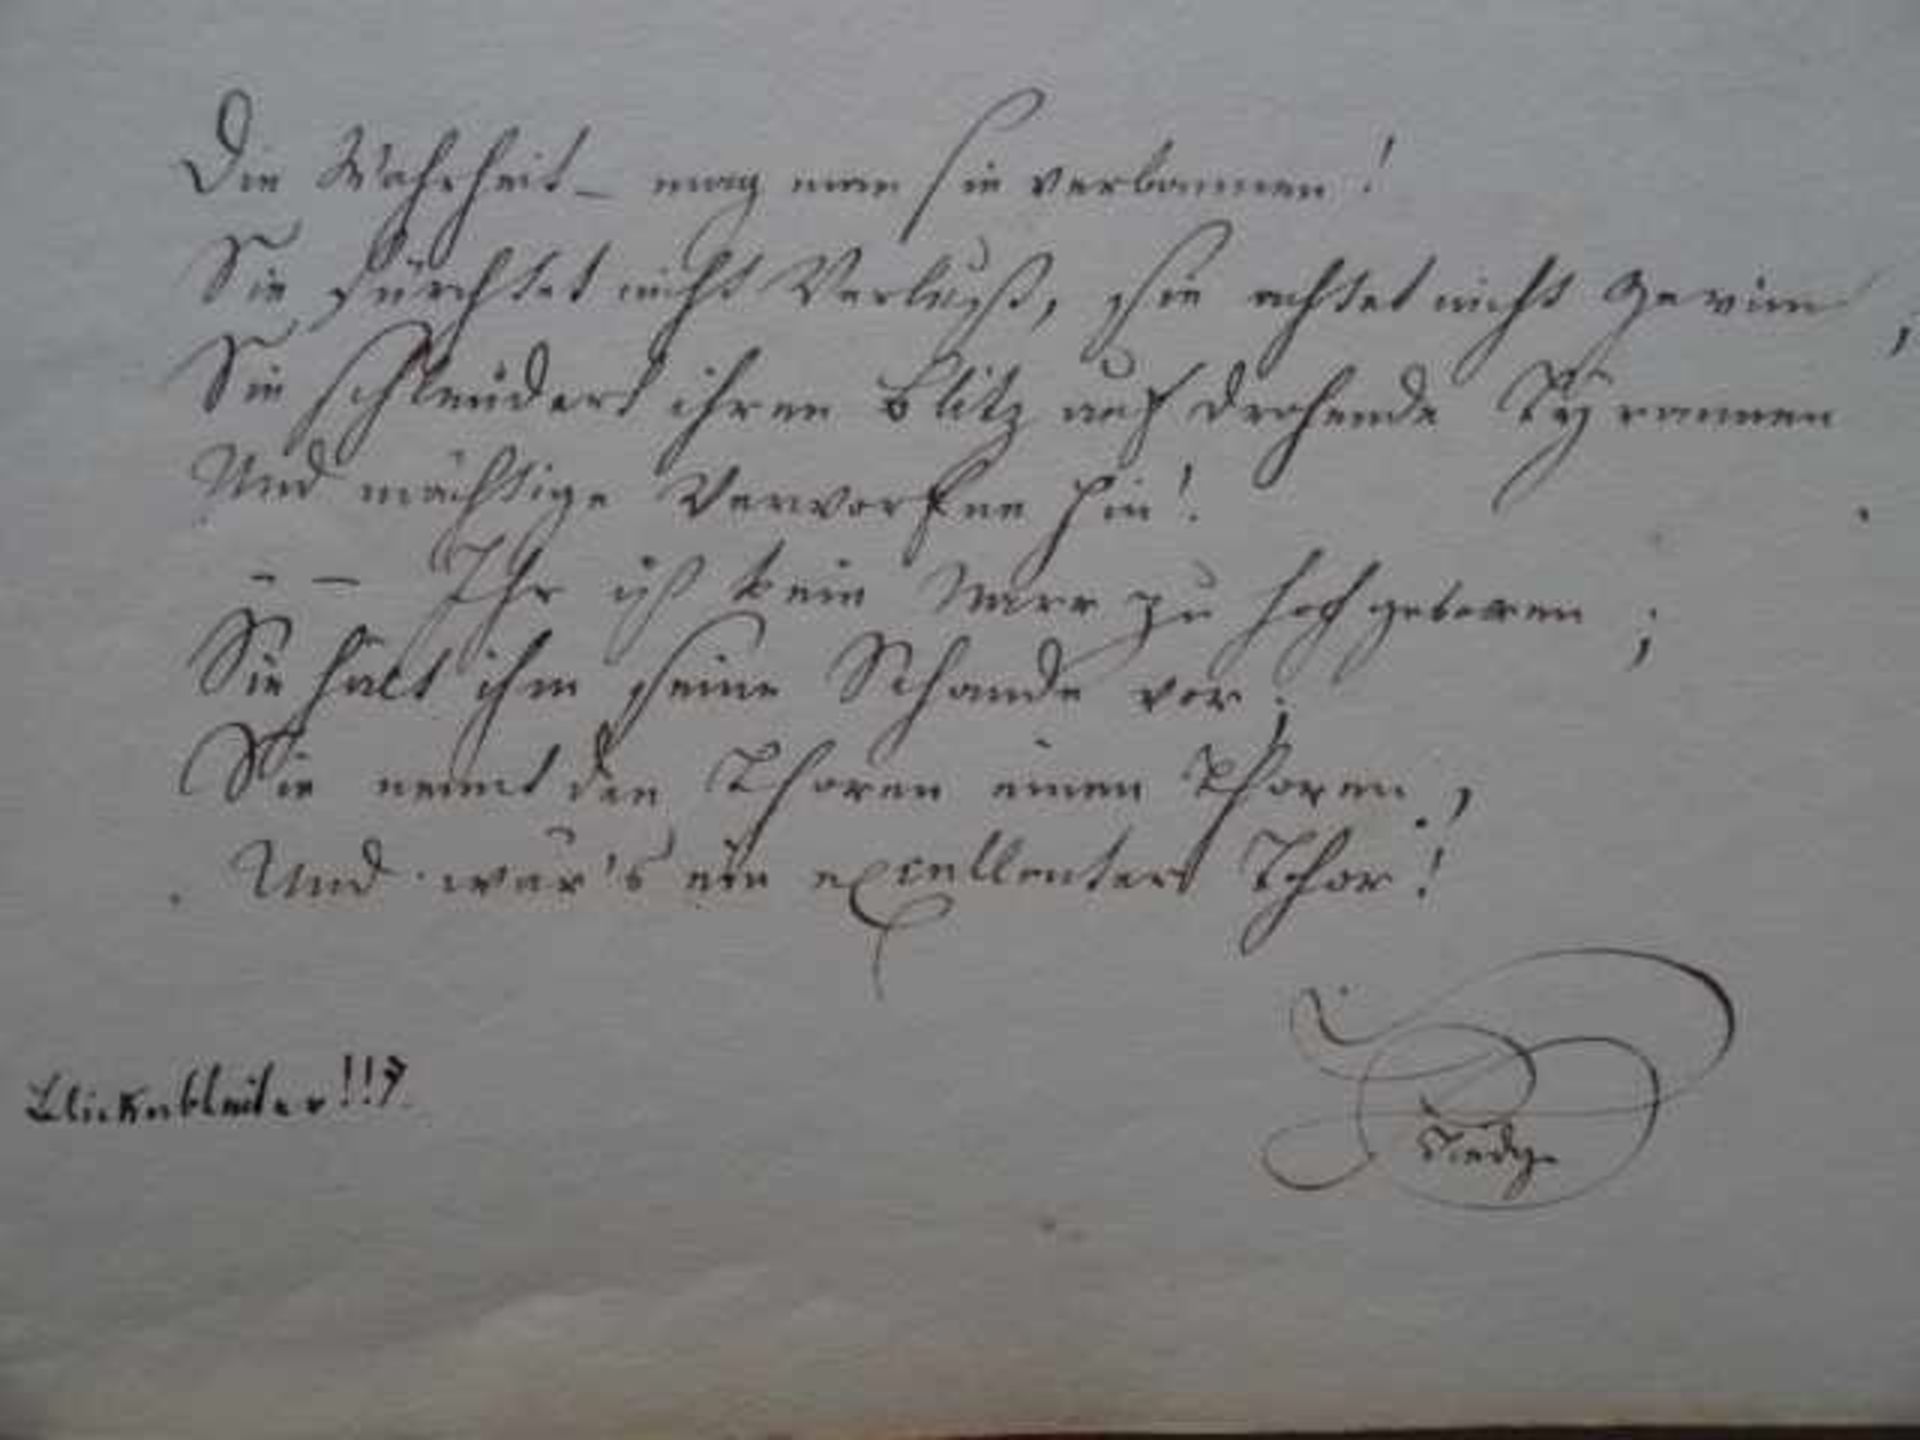 Die Wahrheit – mag man sie verbannen!
Sie fürchtet nicht Verlust, sie achtet nicht Gewinn,
Sie schleudert ihren Blitz auf drohende Tyrannen
Und mächtige Verworfne hin!
– – Ihr ist kein Narr zu hoch geboren;
Sie hält ihm seine Schande vor;
Sie nennt den Thoren einen Thoren,
Und wär's ein excellenter Thor!
Tiedge